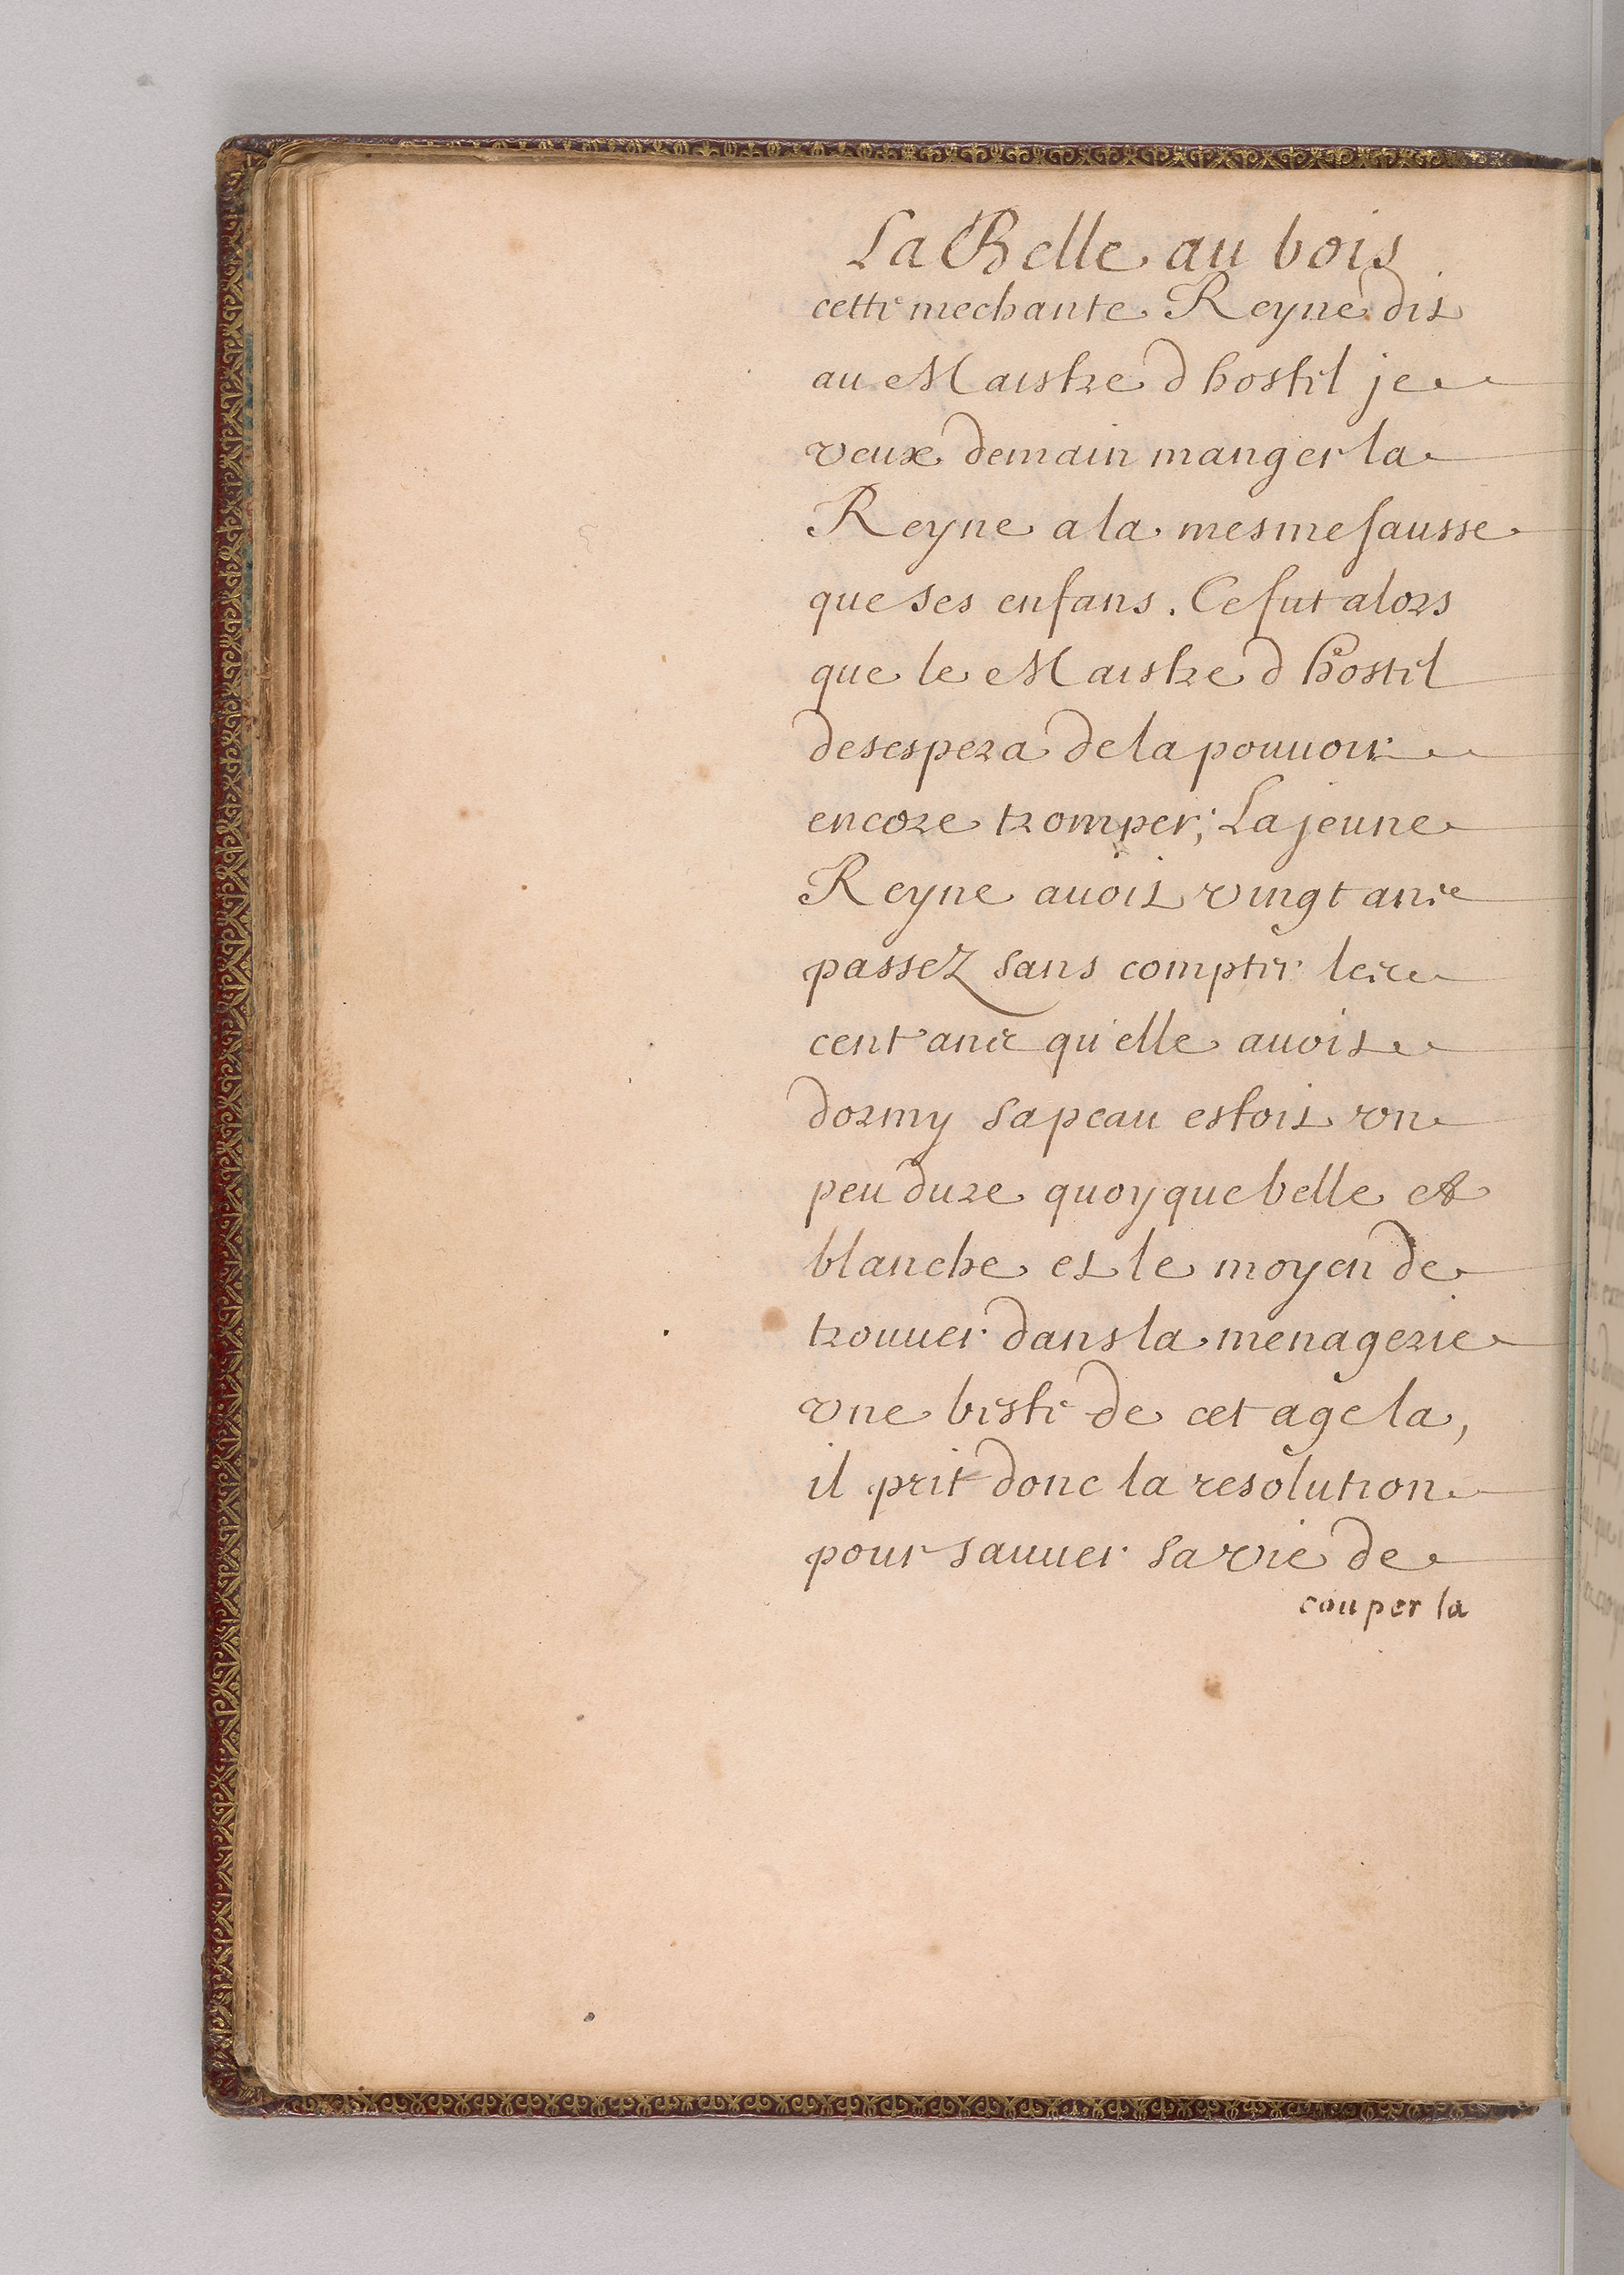 La Belle au bois
cette mechante Reyne dit
au Maistre d hostel je
veux demain manger la
Reyne a la mesme sausse
que ses enfans. Ce fut alors
que le Maistre d hostel
desespera de la pouuoir
encore tromper; La jeune
Reyne auoit vingt ans
passez sans compter les
cent ans qu'elle auoit
dormy sa peau estoit vn
peu dure quoy que belle et
blanche et le moyen de
trouuer dans la menagerie
vne beste de cet age la,
il prit donc la resolution
pour sauuer sa vie de
couper la